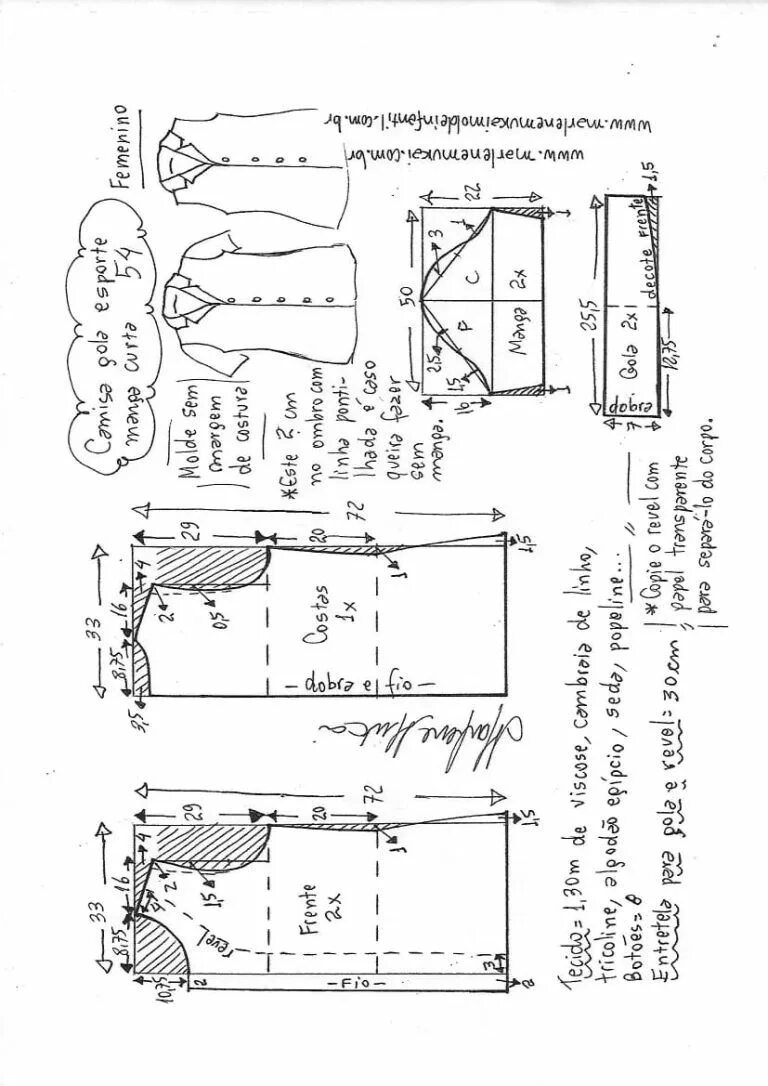 Camisa gola esporte
manga curta 54
Femenino
Molde sem
margem
de costura
*Este 2 cm
no ombro com
linha ponti-
lhada é caso
queira fazer
sem
manga.
www.marlenemukai.com.br
www.marlenemukaimoldeinfantil.com.br
33
8,75
16
4
10,75
2
2
1,5
29
20
72
1
1,5
revel
Frente
2x
3
2
-FIO-
33
8,75
16
4
3,5
2
0,5
29
20
72
1
1,5
Costas
1x
-dobra e fio-
Marlene Mukai
50
22
16
2,5
1,5
3
1
P
C
Manga 2x
1
1
25,5
7
dobra
Gola 2x
decote frente
12,75
1,5
Tecido = 1,30m de viscose, cambraia de linho,
tricoline, algodão egípcio, seda, popeline...
Botões = 8
Entretela para gola e revel = 30cm
* Copie o revel com
papel transparente
para separá-lo do corpo.